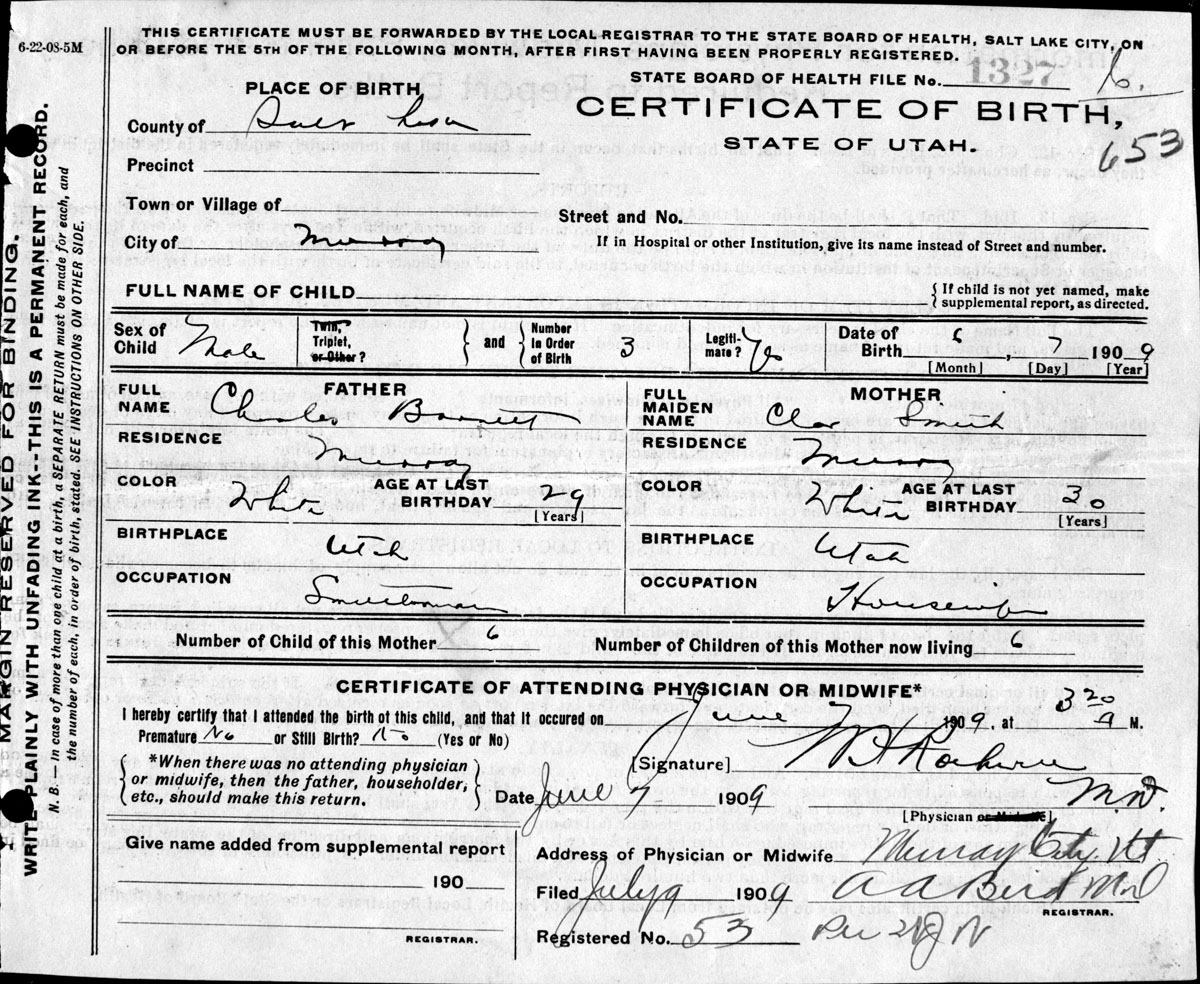 6-22-08-5M
THIS CERTIFICATE MUST BE FORWARDED BY THE LOCAL REGISTRAR TO THE STATE BOARD OF HEALTH, SALT LAKE CITY, ON
OR BEFORE THE 5TH OF THE FOLLOWING MONTH, AFTER FIRST HAVING BEEN PROPERLY REGISTERED.
STATE BOARD OF HEALTH FILE No. 1327 6.
PLACE OF BIRTH
CERTIFICATE OF BIRTH,
County of Salt Lake
STATE OF UTAH.
653
Precinct
Town or Village of
Street and No.
City of Murray
If in Hospital or other Institution, give its name instead of Street and number.
FULL NAME OF CHILD
{ If child is not yet named, make
supplemental report, as directed.
Sex of Child Male
Twin, Triplet, or Other? } and { Number in Order of Birth 3
Legiti-mate? Yes
Date of Birth 6, 7 1909
[Month] [Day] [Year]
FATHER
FULL NAME Charles
RESIDENCE Murray
COLOR White AGE AT LAST BIRTHDAY 29
[Years]
BIRTHPLACE Utah
OCCUPATION Smelterman
MOTHER
FULL MAIDEN NAME Clara Smith
RESIDENCE Murray
COLOR White AGE AT LAST BIRTHDAY 30
[Years]
BIRTHPLACE Utah
OCCUPATION Housewife
Number of Child of this Mother 6 Number of Children of this Mother now living 6
CERTIFICATE OF ATTENDING PHYSICIAN OR MIDWIFE*
I hereby certify that I attended the birth of this child, and that it occured on June 7 1909, at 3 20 A M.
Premature No or Still Birth? No (Yes or No)
[Signature]
*When there was no attending physician
or midwife, then the father, householder,
etc., should make this return.
Date June 7 1909 M.D.
[Physician or Midwife]
Give name added from supplemental report
190
REGISTRAR.
Address of Physician or Midwife Murray City Ut.
Filed July 9 1909 A A Bird MD
REGISTRAR.
Registered No. 53 Per
MARGIN RESERVED FOR BINDING.
WRITE PLAINLY WITH UNFADING INK--THIS IS A PERMANENT RECORD.
N. B.—In case of more than one child at a birth, a SEPARATE RETURN must be made for each, and
the number of each, in order of birth, stated. SEE INSTRUCTIONS ON OTHER SIDE.